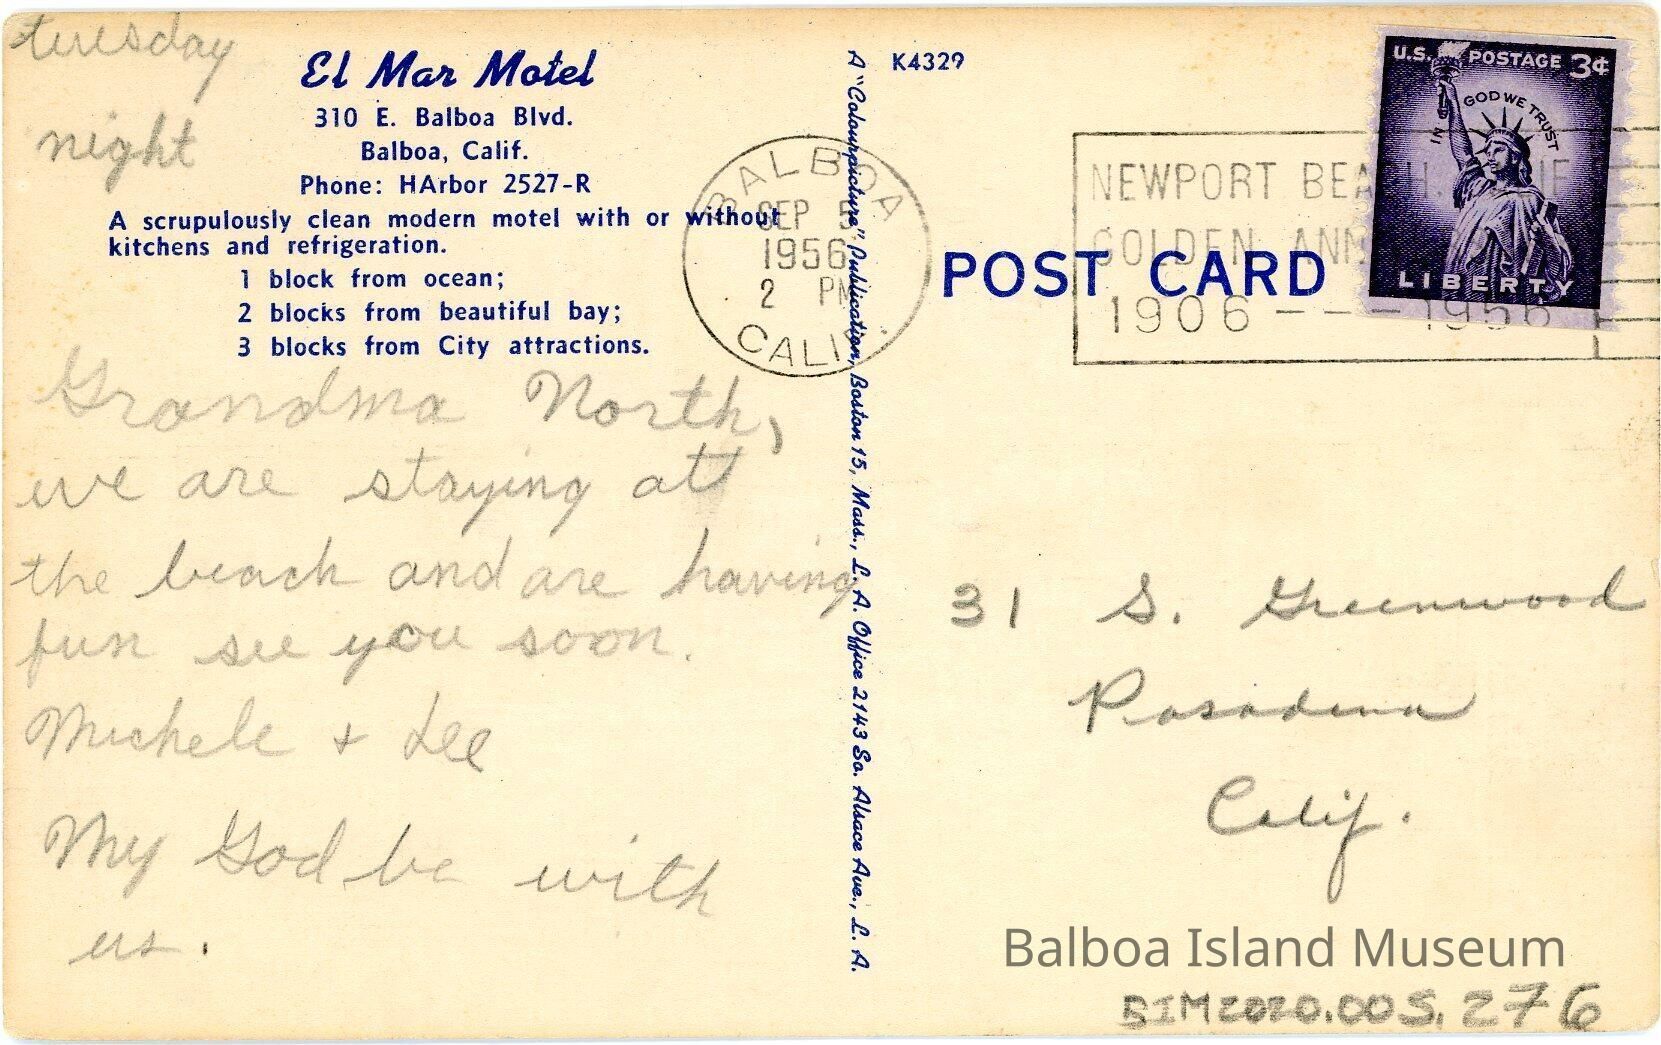 tuesday
night
El Mar Motel
310 E. Balboa Blvd.
Balboa, Calif.
Phone: HArbor 2527-R
A scrupulously clean modern motel with or without
kitchens and refrigeration.
1 block from ocean;
2 blocks from beautiful bay;
3 blocks from City attractions.
Grandma North,
we are staying att
the beach and are having
fun see you soon.
Michele + Lee
My God be with
us.
A "Colourpicture" Publication, Boston 15, Mass., L. A. Office 2143 So. Alsace Ave., L. A.
K4329
BALBOA
SEP 5
1956
2 PM
CALIF.
NEWPORT BEACH, CALIF
GOLDEN ANN
1906 - - - 1956
U.S. POSTAGE 3¢
IN GOD WE TRUST
LIBERTY
POST CARD
31 S. Greenwood
Pasadena
Calif.
Balboa Island Museum
BIM2020.005.276